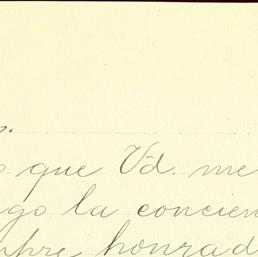 que Vd. me
la concien
honrad